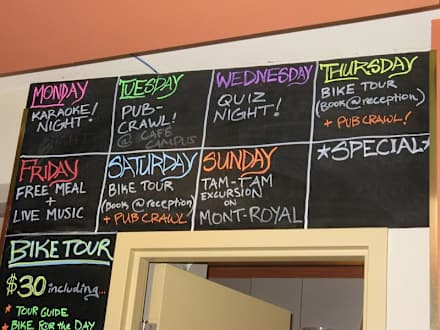 MONDAY
KARAOKE!
NIGHT!
TUESDAY
PUB-
CRAWL!
@ CAFÉ
CAMPUS
WEDNESDAY
QUIZ
NIGHT!
THURSDAY
BIKE TOUR
(Book @ reception)
+ PUB CRAWL!
FRIDAY
FREE MEAL
+
LIVE MUSIC
SATURDAY
BIKE TOUR
(Book @ reception)
+ PUB CRAWL
SUNDAY
TAM-TAM
EXCURSION
ON
MONT-ROYAL
*SPECIAL*
BIKE TOUR
$30 including...
* TOUR GUIDE
* BIKE FOR THE DAY